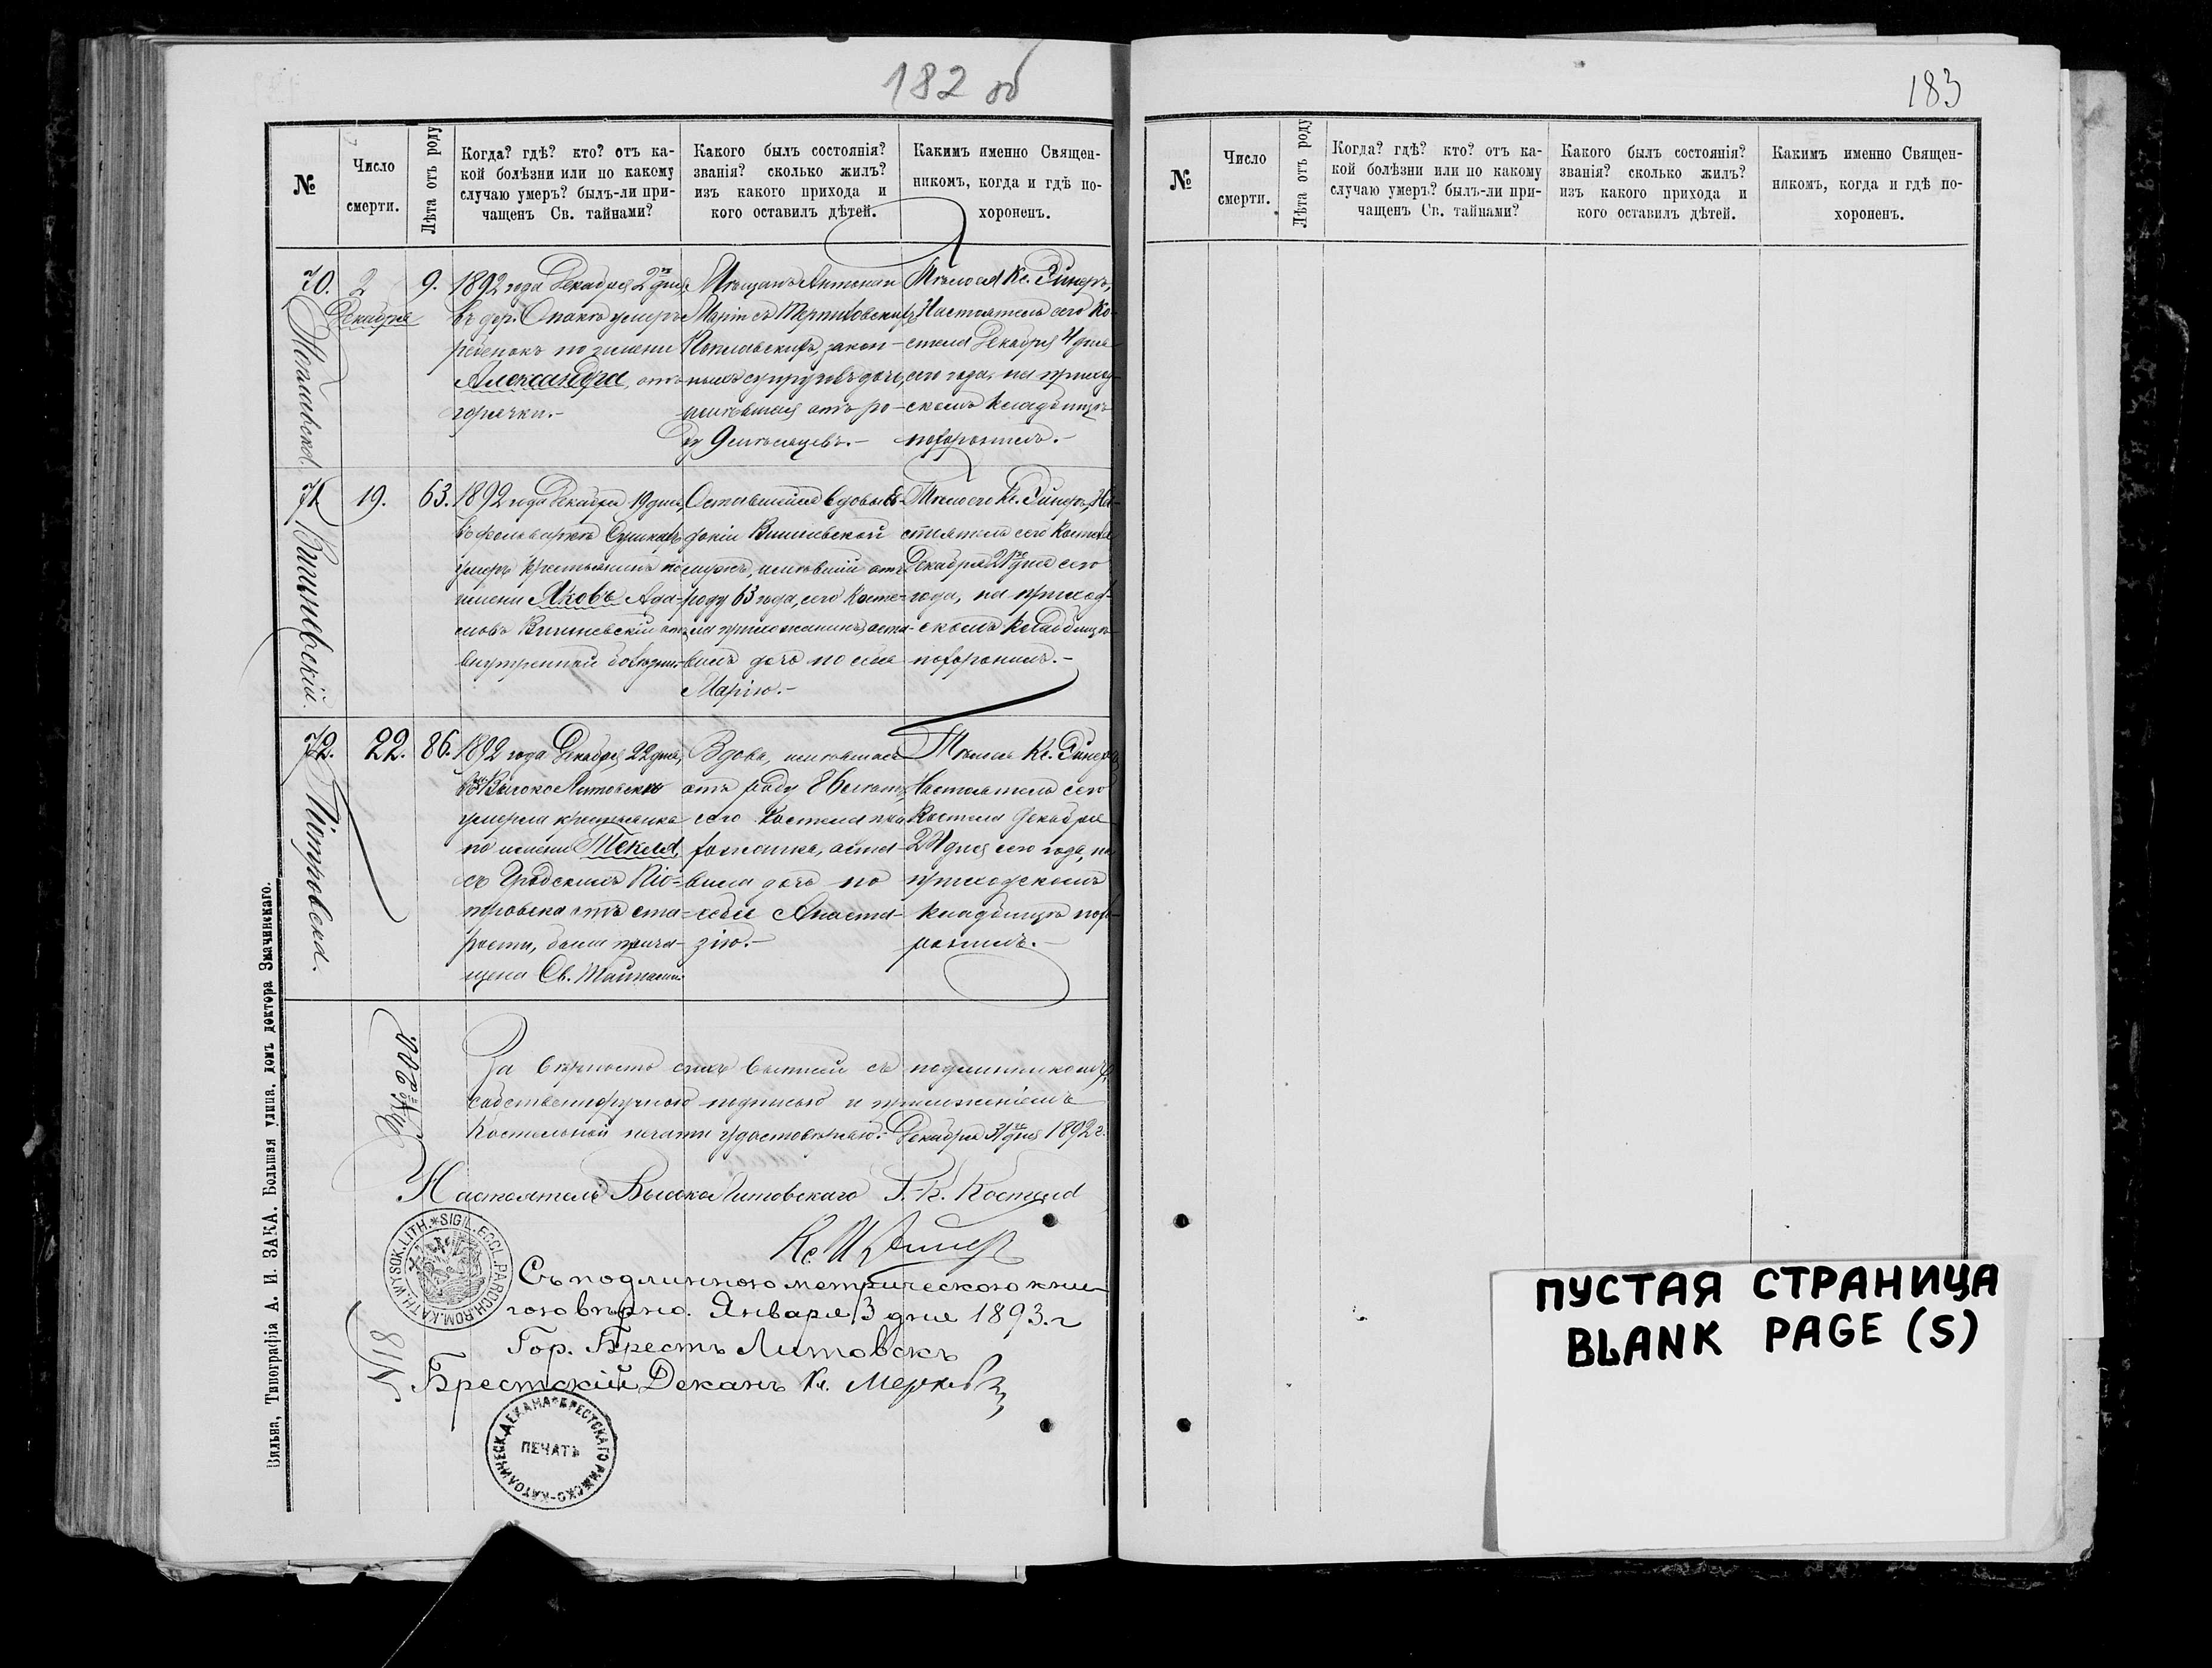 182 об
№
Число
смерти.
Лѣта отъ роду
Когда? гдѣ? кто? отъ ка-
кой болѣзни или по какому
случаю умеръ? былъ-ли при-
чащенъ Св. тайнами?
Какого былъ состоянія?
званія? сколько жилъ?
изъ какого прихода и
кого оставилъ дѣтей.
Какимъ именно Священ-
никомъ, когда и гдѣ по-
хороненъ.
70.
2
Декабря
9.
1892 года Декабря 2го дня,
въ дер. умеръ
ребенокъ по имени
Александра, отъ
горячки.-
Мѣщанъ Антонія
Маріи съ
закон-
ныхъ супруговъ дочь,
имѣвшая отъ ро-
ду 9 мѣсяцевъ.-
Тѣло ея Кс.
Настоятель сего Ко-
стела Декабря 4 дня
сего года, на приход-
скомъ кладбищѣ
похоронилъ.-
71.
Вишневскій.
19.
63.
1892 года Декабря 19 дня,
въ фольваркѣ
умеръ крестьянинъ по
имени Яковъ Ада-
мовъ Вишневскій отъ
внутренней болѣзни.
Оставшейся вдовы
Вишневской
мужъ, имѣвшій отъ
роду 63 года, сего Косте-
ла прихожанинъ, оста-
вилъ дочь по себѣ
Марію.-
Тѣло его Кс. На-
стоятель сего Костела
Декабря 21го дня сего
года, на приход-
скомъ кладбищѣ
похоронилъ.-
72.
Піотровска.
22.
86.
1892 года Декабря 22 дня,
въ м. Высоко Литовскѣ
умерла крестьянка
по имени Текля,
съ Піо-
тровска отъ ста-
рости, была прича-
щена Св. Тайнами.
Вдова, имѣвшая
отъ роду 86 лѣтъ,
сего Костела при-
хожанка, оста-
вила дочь по
себѣ Анаста-
зію.-
Тѣло Кс.
Настоятель сего
Костела Декабря
24 дня сего года, на
приходскомъ
кладбищѣ похо-
ронилъ.-
За вѣрность сихъ съ подлинникомъ,
собственноручною подписью и приложеніемъ
Костельной печати удостовѣряю. Декабря 31го дня 1892 г.
Настоятель Высоко Литовскаго Р.-К. Костела
SIGIL. ECCL. PAROCH. ROM. KATH. WYSOK. LITH. *
Съ подлинною метрическою кни-
гою вѣрно. Января 13 дня 1893. г
Гор. Брестъ Литовскъ
Брестскій Деканъ Кс.
N 18
ПЕЧАТЬ
ДЕКАНА БРЕСТСКАГО РИМСКО-КАТОЛИЧЕСК.
Вильна, Типографія А. И. ЗАКА. Большая улица, домъ доктора Значинскаго.
183
№
Число
смерти.
Лѣта отъ роду
Когда? гдѣ? кто? отъ ка-
кой болѣзни или по какому
случаю умеръ? былъ-ли при-
чащенъ Св. тайнами?
Какого былъ состоянія?
званія? сколько жилъ?
изъ какого прихода и
кого оставилъ дѣтей.
Какимъ именно Священ-
никомъ, когда и гдѣ по-
хороненъ.
ПУСТАЯ СТРАНИЦА
BLANK PAGE (S)